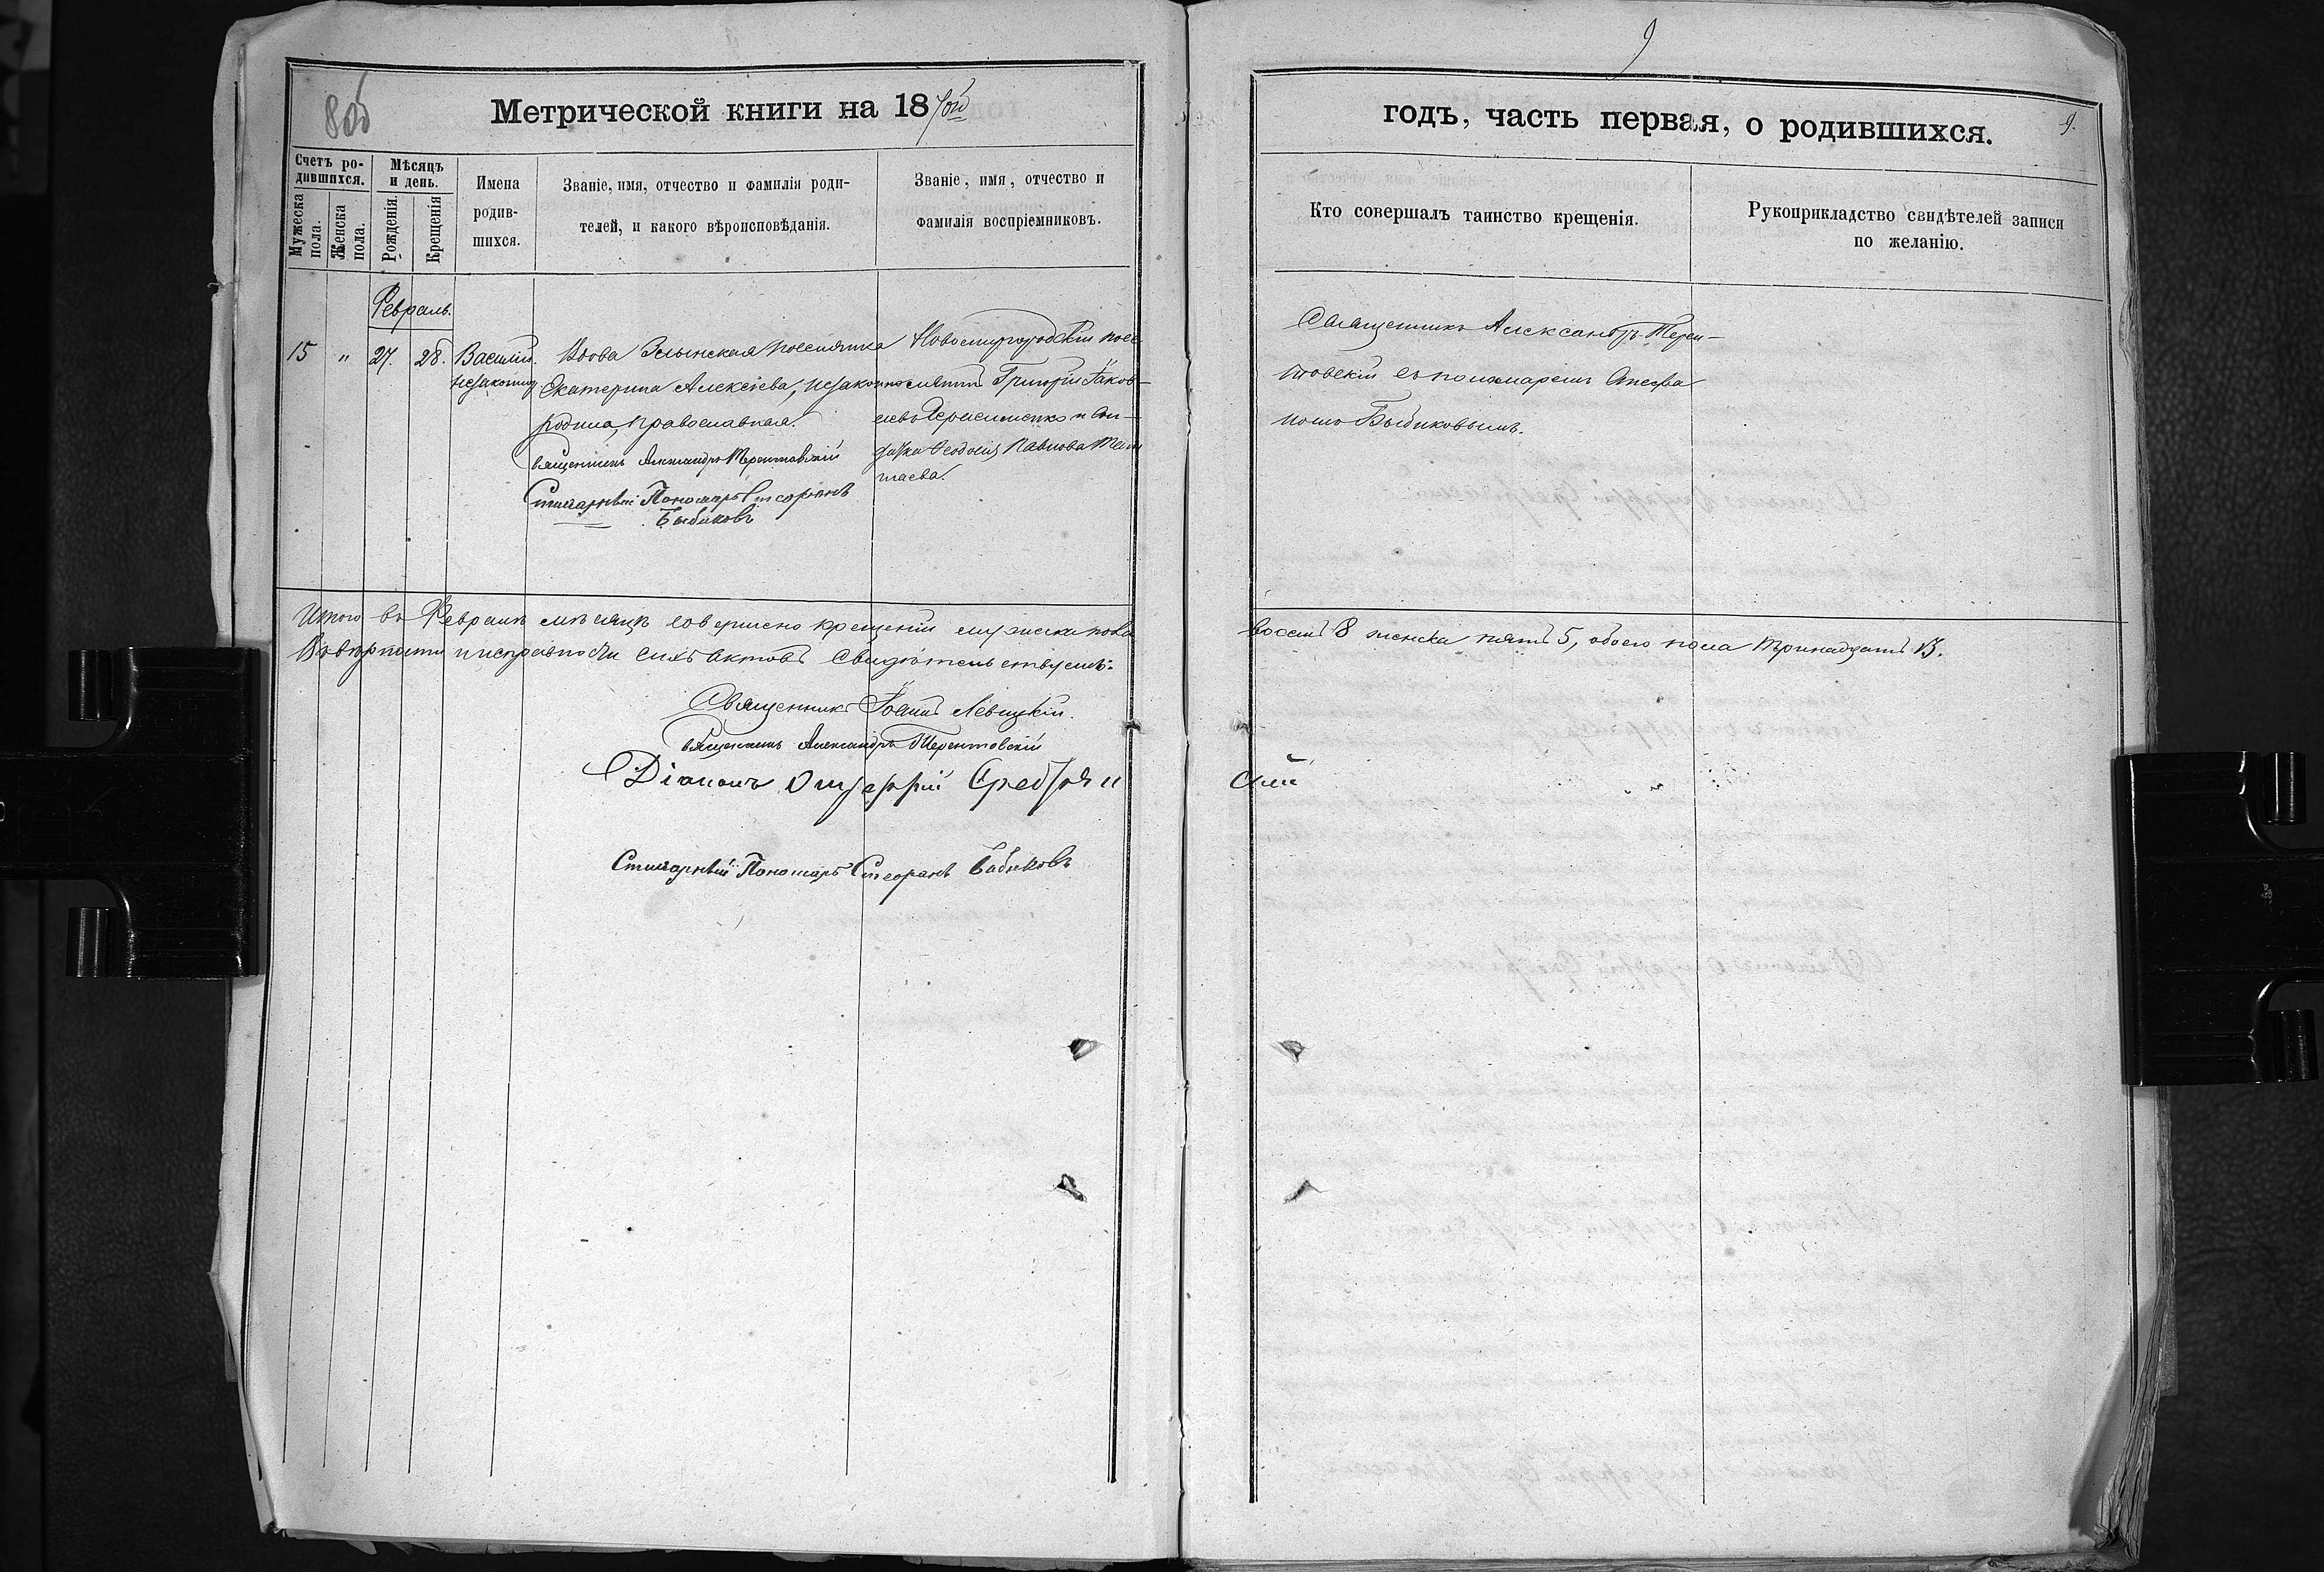 9
8об
Метрической книги на 1870й
годъ, часть первая, о родившихся.
9.
Счетъ ро-
дившихся.
Мѣсяцъ
и день.
Мужеска
пола.
Женска
пола.
Рожденія.
Крещенія
Имена
родив-
шихся.
Званіе, имя, отчество и фамилія роди-
телей, и какого вѣроисповѣданія.
Званіе, имя, отчество и
фамилія воспріемниковъ.
Кто совершалъ таинство крещенія.
Рукоприкладство свидѣтелей записи
по желанію.
Февраль.
15 " 27. 28. Василій
незакон
Вдова поселянка
Екатерина Алексіева, незаконно
родила, православная.
Священникъ Александръ Терентовскій
Стихарный Пономарь Стефанъ
Бабиковъ
Новомиргородскій посе
лянинъ Григорій Яков-
левъ Герасименко и
Феодосія Павлова
Священникъ Александръ Терен-
товскій съ пономаремъ Стефа
номъ Бабиковымъ.
Итого въ Февралѣ мѣсяцѣ совершено крещеній мужеска пола
восемь 8 женска пять 5, обоего пола тринадцать 13.
Въ вѣрности и исправности сихъ актовъ свидѣтельствуемъ:
Священникъ Іоаннъ Левицкій.
Священникъ Александръ Терентовскій
Діаконъ Онуфрій
Стихарный Пономарь Стефанъ Бабиковъ